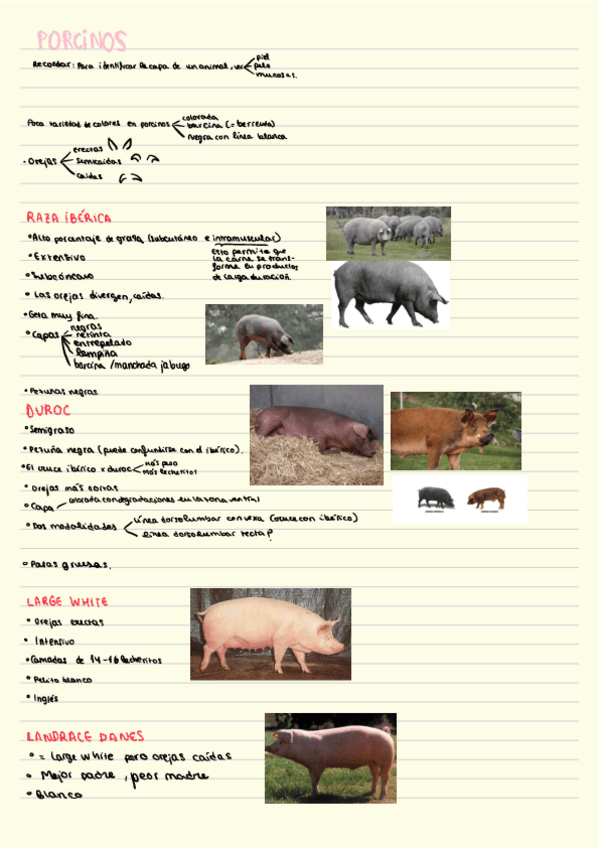 PORCINOS
Recordar: Para identificar la capa de un animal, ver
piel
pelo
mucosas.
Poca variedad de colores en porcinos
colorada
barcina (= berrenda)
negra con línea blanca
• Orejas
erectas
semicaídas
caídas
RAZA IBÉRICA
• Alto porcentaje de grasa (subcutáneo e intramuscular)
Esto permite que
la carne se trans-
forme en productos
de larga duración.
• Extensivo
• Subcóncavo
• Las orejas divergen, caídas.
• Geta muy fina.
• Capas
negras
retinta
entrepelado
lampiña
barcina / manchada jabugo
• Pezuñas negras
DUROC
• Semigraso
• Pezuña negra (puede confundirse con el ibérico).
• El cruce ibérico x duroc
más peso
más lechetitos
• Orejas más cortas
• Capa
colorada con degradaciones en la zona ventral
• Dos modalidades
línea dorsolumbar convexa (cruce con ibérico)
línea dorsolumbar recta?
• Patas gruesas.
LARGE WHITE
• Orejas erectas
• Intensivo
• Camadas de 14-16 lechetitos
• Pelito blanco
• Inglés
LANDRACE DANES
• = Large white pero orejas caídas
• Mejor padre, peor madre
• Blanco